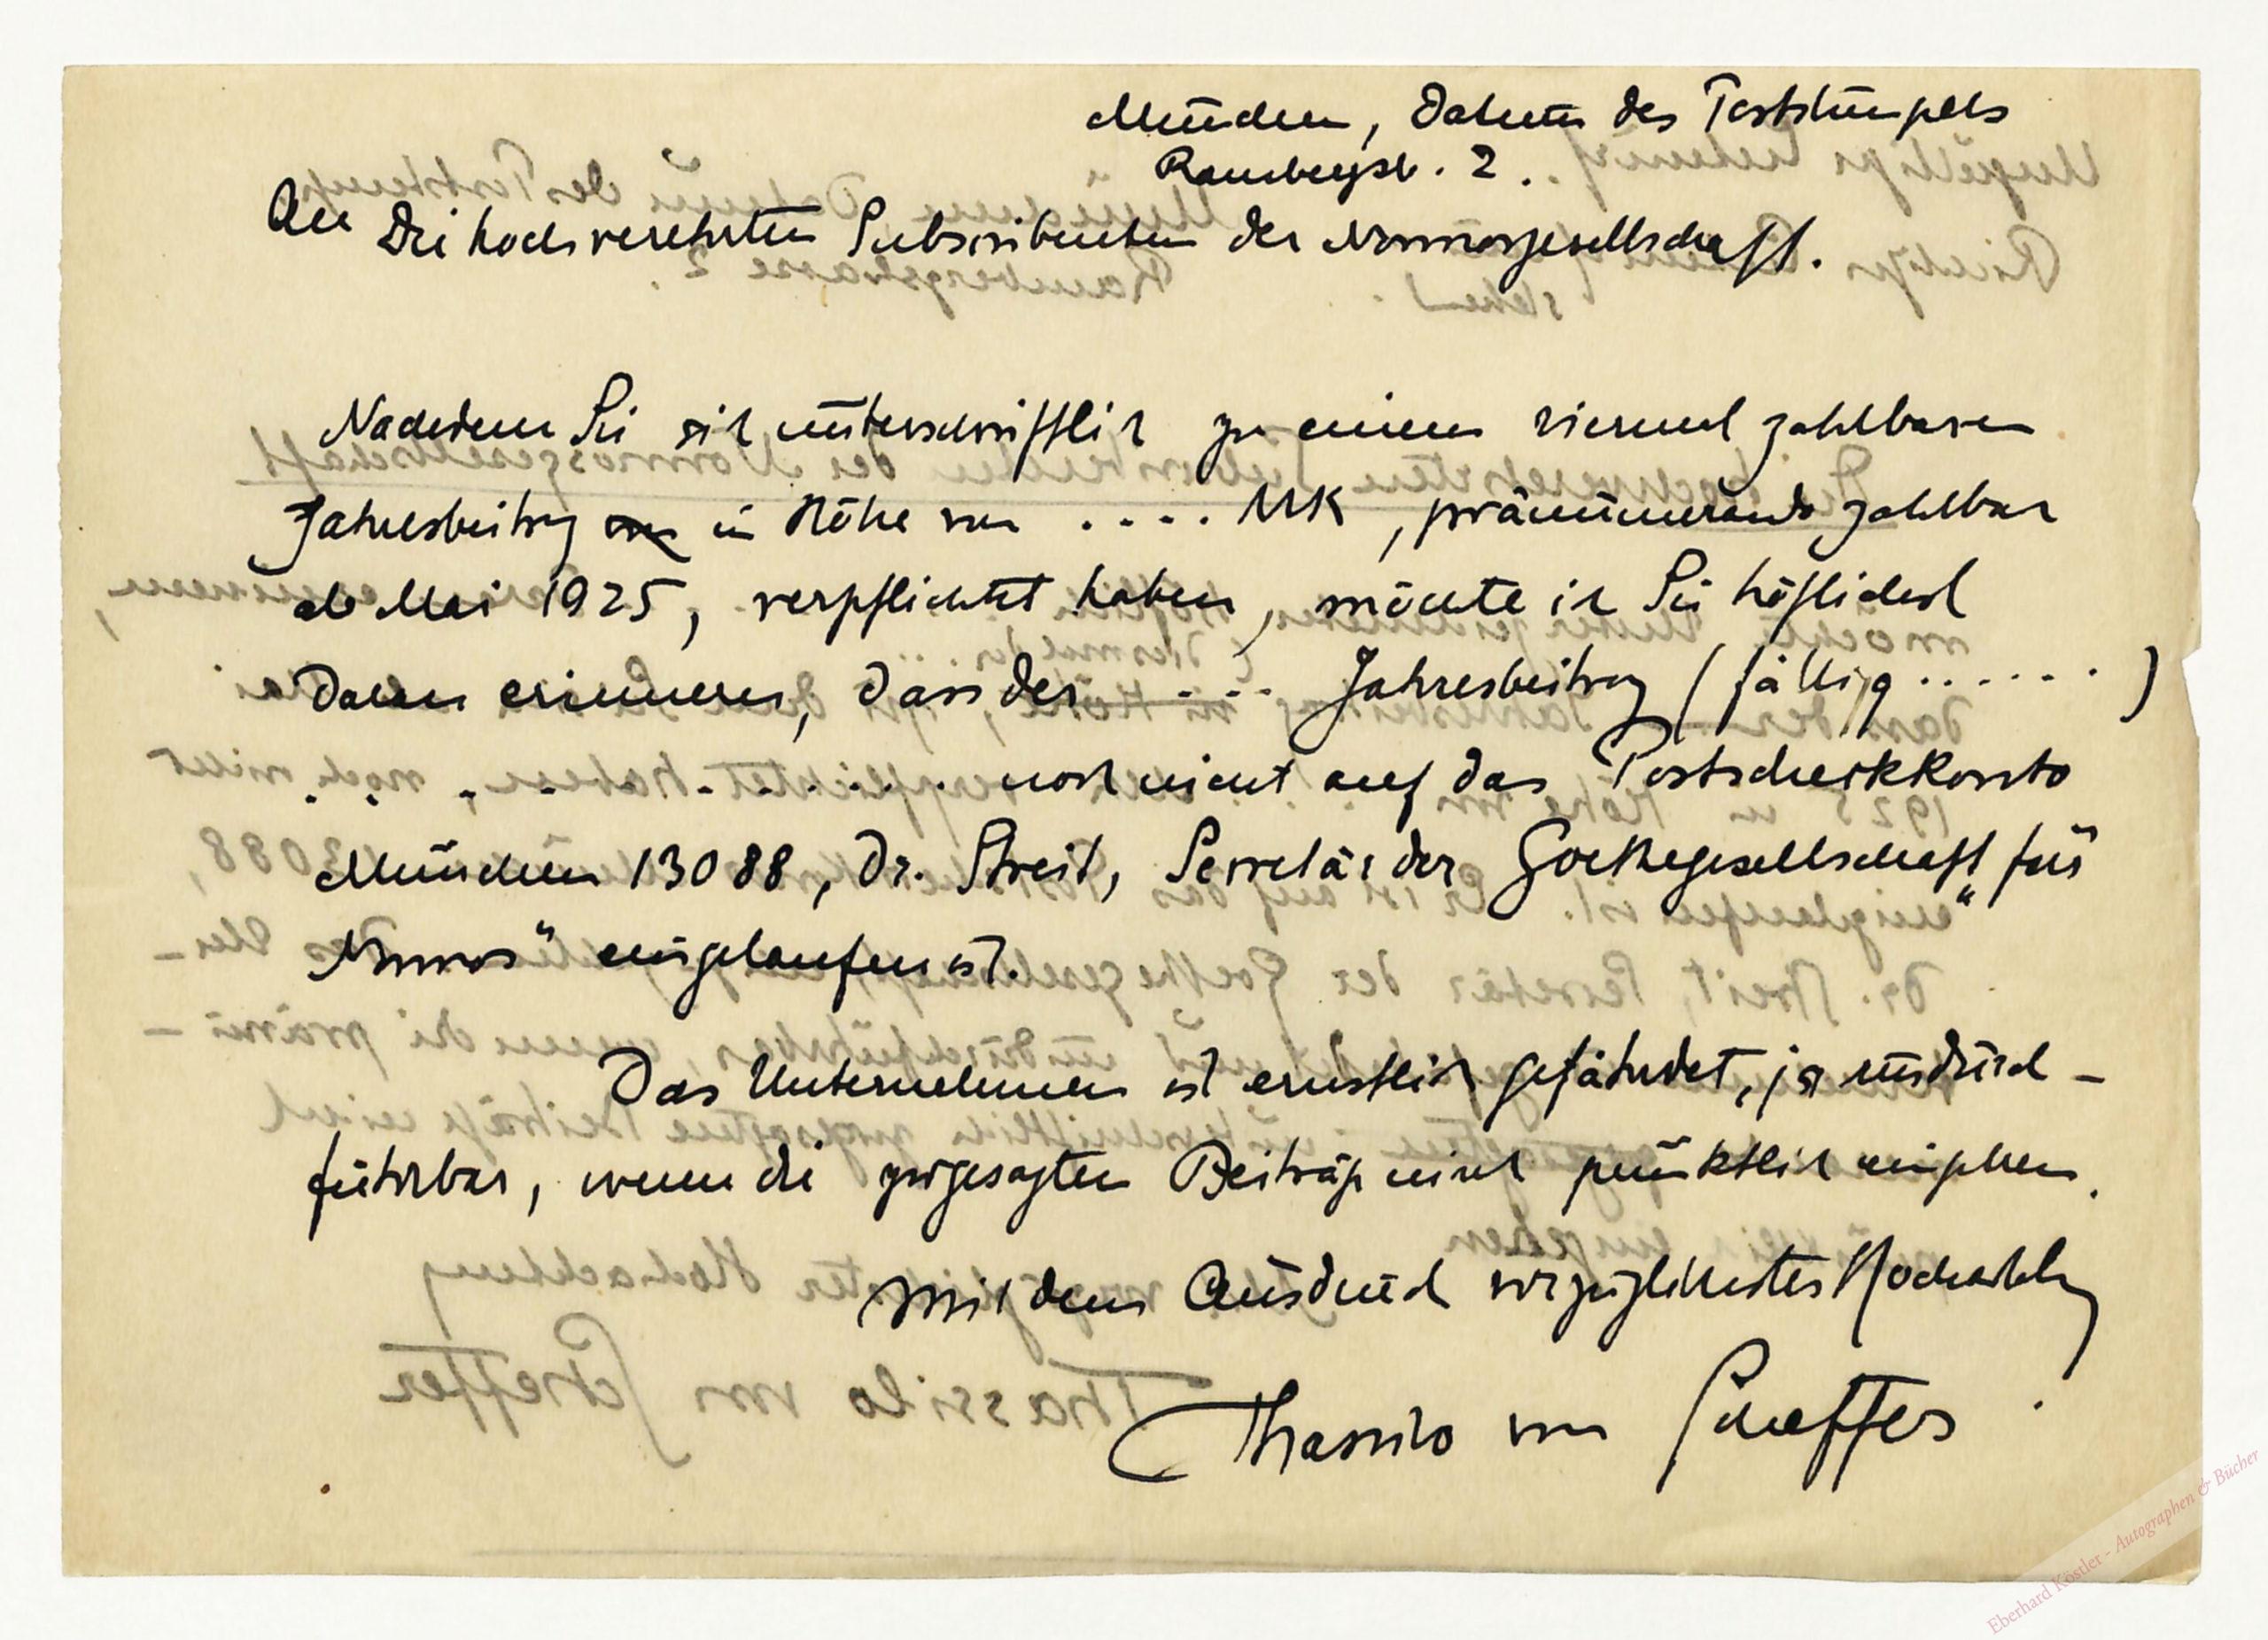 München, Datum des Poststempels
Rambergstr. 2.
An die hochverehrten Subscribenten der Nonnosgesellschaft.
Nachdem Sie sich unterschriftlich zu einem viermal zahlbaren
Jahresbeitrag in Höhe von .... MK, pränumerando zahlbar
ab Mai 1925, verpflichtet haben, möchte ich Sie höflichst
daran erinnern, dass der .... Jahresbeitrag (fällig ......)
. . . . . . . . . . . . noch nicht auf das Postscheckkonto
München 13088, Dr. Streit, Secretär der Goethegesellschaft „für
Nonnos" eingelaufen ist.
Das Unternehmen ist ernstlich gefährdet, ja undurch-
führbar, wenn die zugesagten Beiträge nicht pünktlich eingehen.
Mit dem Ausdruck vorzüglichster Hochachtung
Thassilo von Scheffer
Eberhard Köstler - Autographen & Bücher